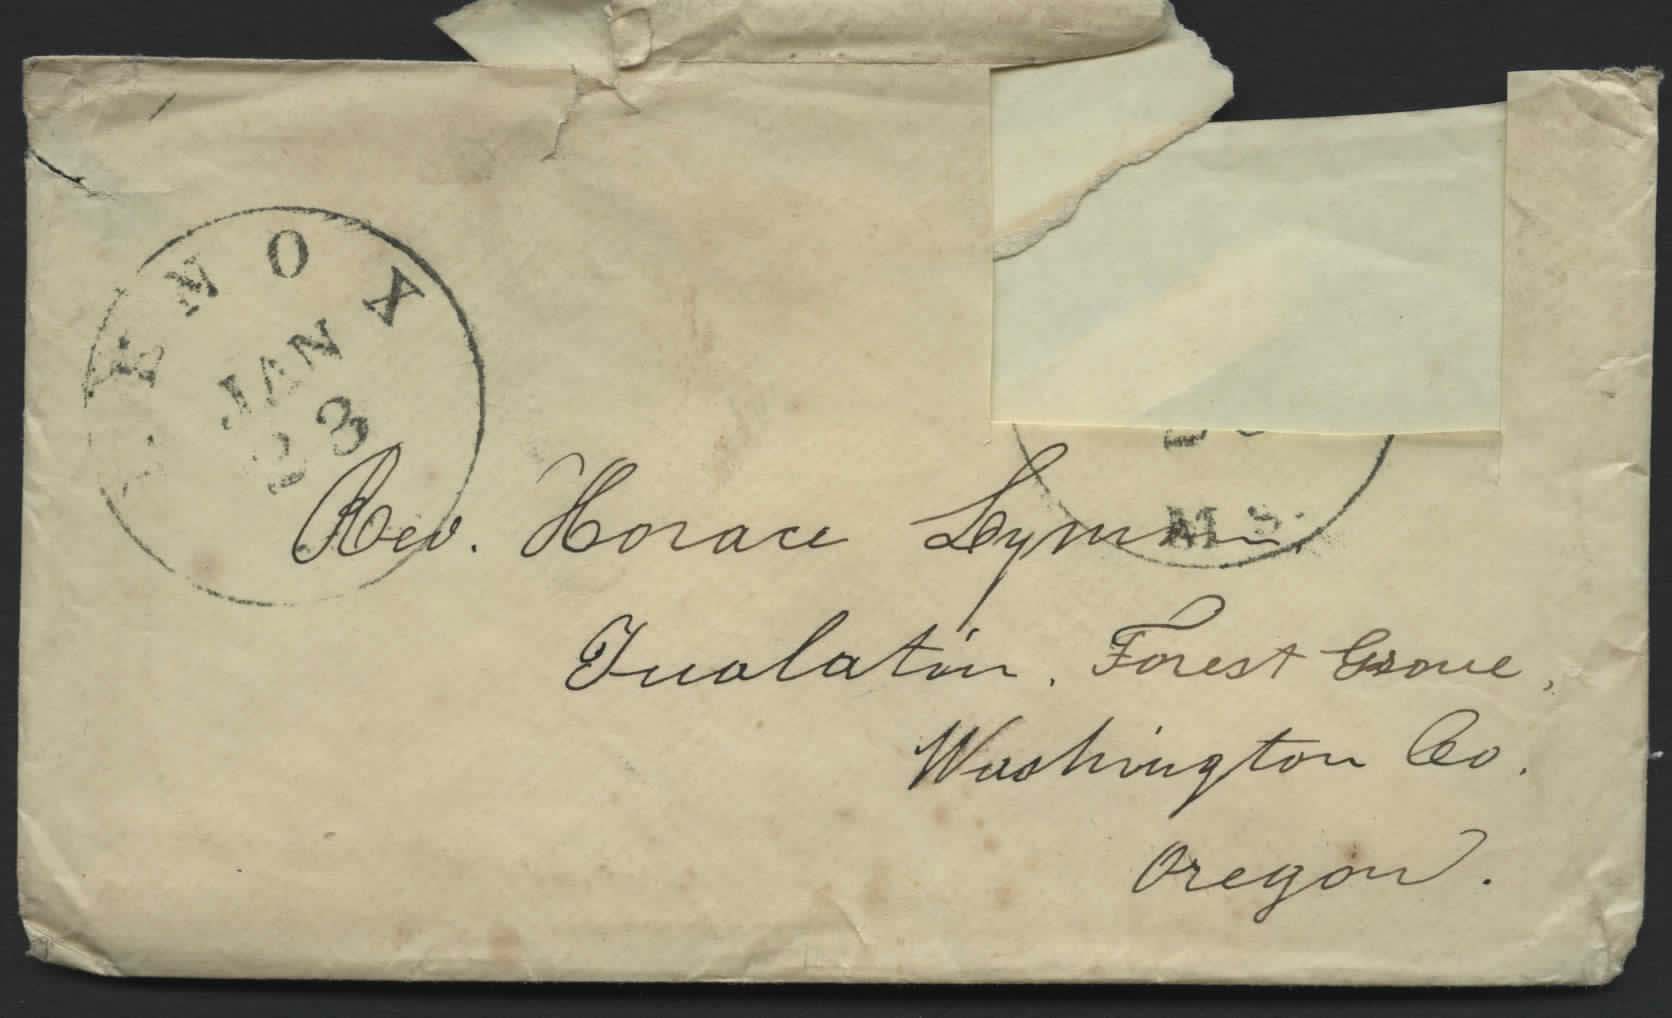 LENOX
JAN
23
MS.
Rev. Horace Lyman.
Tualatin, Forest Grove,
Washington Co.
Oregon.